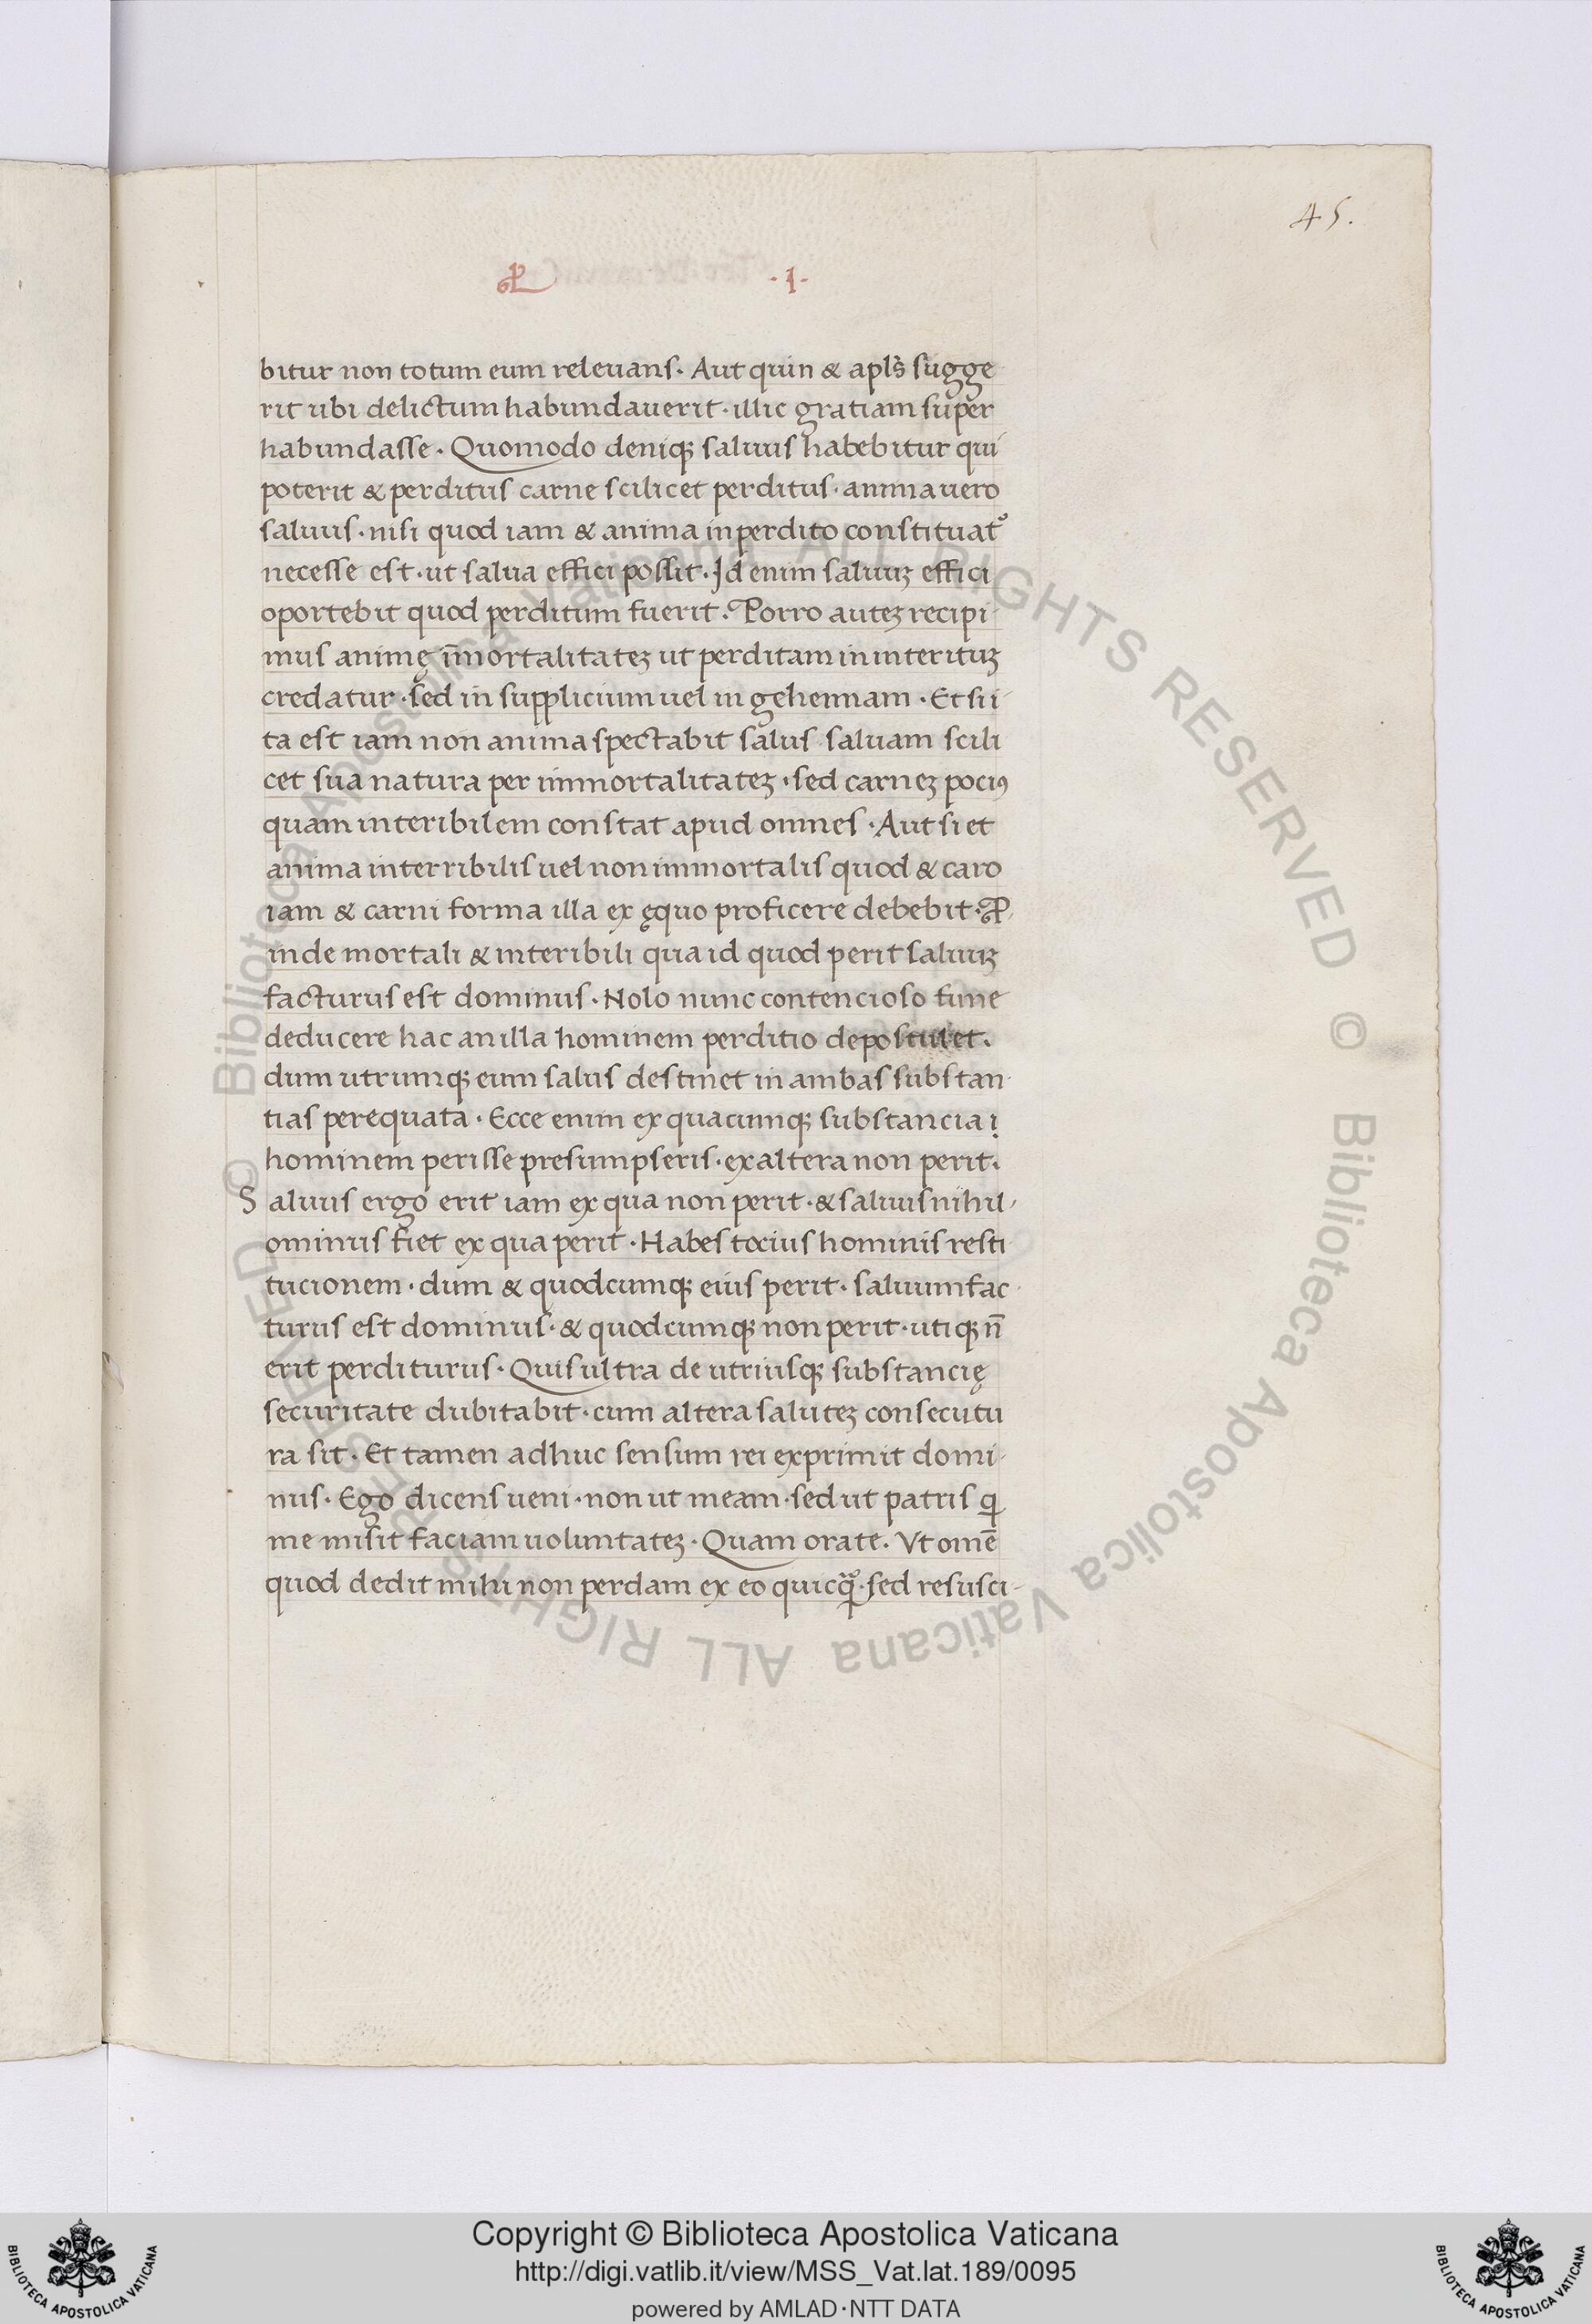 45.
PL ·I·
bitur non totum eum releuans. Aut quin & apls̃ sugge
rit ubi delictum habundauerit · illic gratiam super
habundasse · Quomodo deniqꝫ saluus habebitur qui
poterit & perditus carne scilicet perditus · anima uero
saluus · nisi quod iam & anima in perdito constituat᷒
necesse est · ut salua effici possit. Id enim saluuꝫ effici
oportebit quod perditum fuerit. Porro auteꝫ recipi
mus animę īmortalitateꝫ ut perditam in interituꝫ
credatur · sed in supplicium uel in gehennam · Et si i-
ta est iam non anima spectabit salus saluam scili
cet sua natura per immortalitateꝫ · sed carneꝫ pociꝰ
quam interibilem constat apud omnes · Aut si et
anima interribilis uel non immortalis quod & caro
iam & carni forma illa ex ęquo proficere debebit · P
inde mortali & interibili qua id quod perit saluuꝫ
facturus est dominus · Nolo nunc contencioso fune
deducere hac an illa hominem perditio depostulet.
dum utrumqꝫ eum salus destinet in ambas substan
tias perequata · Ecce enim ex quacumqꝫ substancia ị
hominem perisse presumpseris · ex altera non perit.
Saluus ergo erit iam ex qua non perit · & saluus nihil-
ominus fiet ex qua perit · Habes tocius hominis resti
tucionem · dum & quodcumqꝫ eius perit · saluum fac
turus est dominus · & quodcumqꝫ non perit · utiqꝫ n̄
erit perditurus · Quis ultra de utriusqꝫ substancię
securitate dubitabit · cum altera saluteꝫ consecutu
ra sit · Et tamen adhuc sensum rei exprimit domi-
nus · Ego dicens ueni · non ut meam · sed ut patris qi
me misit faciam uoluntateꝫ · Quam orate. Vt omē
quod dedit mihi non perdam ex eo quicꝙ̃ · sed resusci-
© Biblioteca Apostolica Vaticana ALL RIGHTS RESERVED © Biblioteca Apostolica Vaticana ALL RIGHTS RESERVED
Copyright © Biblioteca Apostolica Vaticana
http://digi.vatlib.it/view/MSS_Vat.lat.189/0095
powered by AMLAD·NTT DATA
BIBLIOTECA APOSTOLICA VATICANA
BIBLIOTECA APOSTOLICA VATICANA